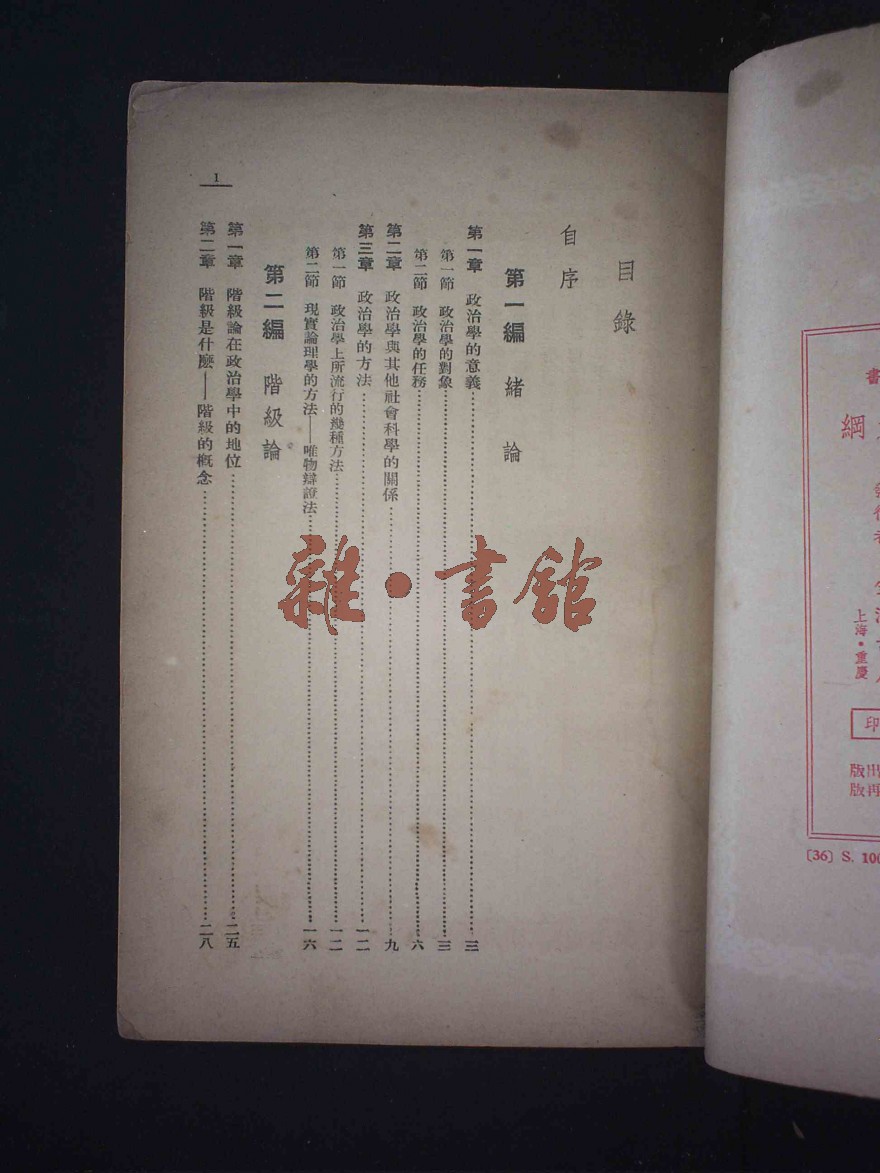 目錄
自序
第一編 緒論
第一章 政治學的意義……三
第一節 政治學的對象……三
第二節 政治學的任務……六
第二章 政治學與其他社會科學的關係……九
第三章 政治學的方法……一二
第一節 政治學上所流行的幾種方法……一二
第二節 現實論理學的方法——唯物辯證法……一六
第二編 階級論
第一章 階級論在政治學中的地位……二五
第二章 階級是什麽——階級的概念……二八
1
雜·書館
書
綱
上海·重慶
印
出版
再版
〔36〕 S. 100